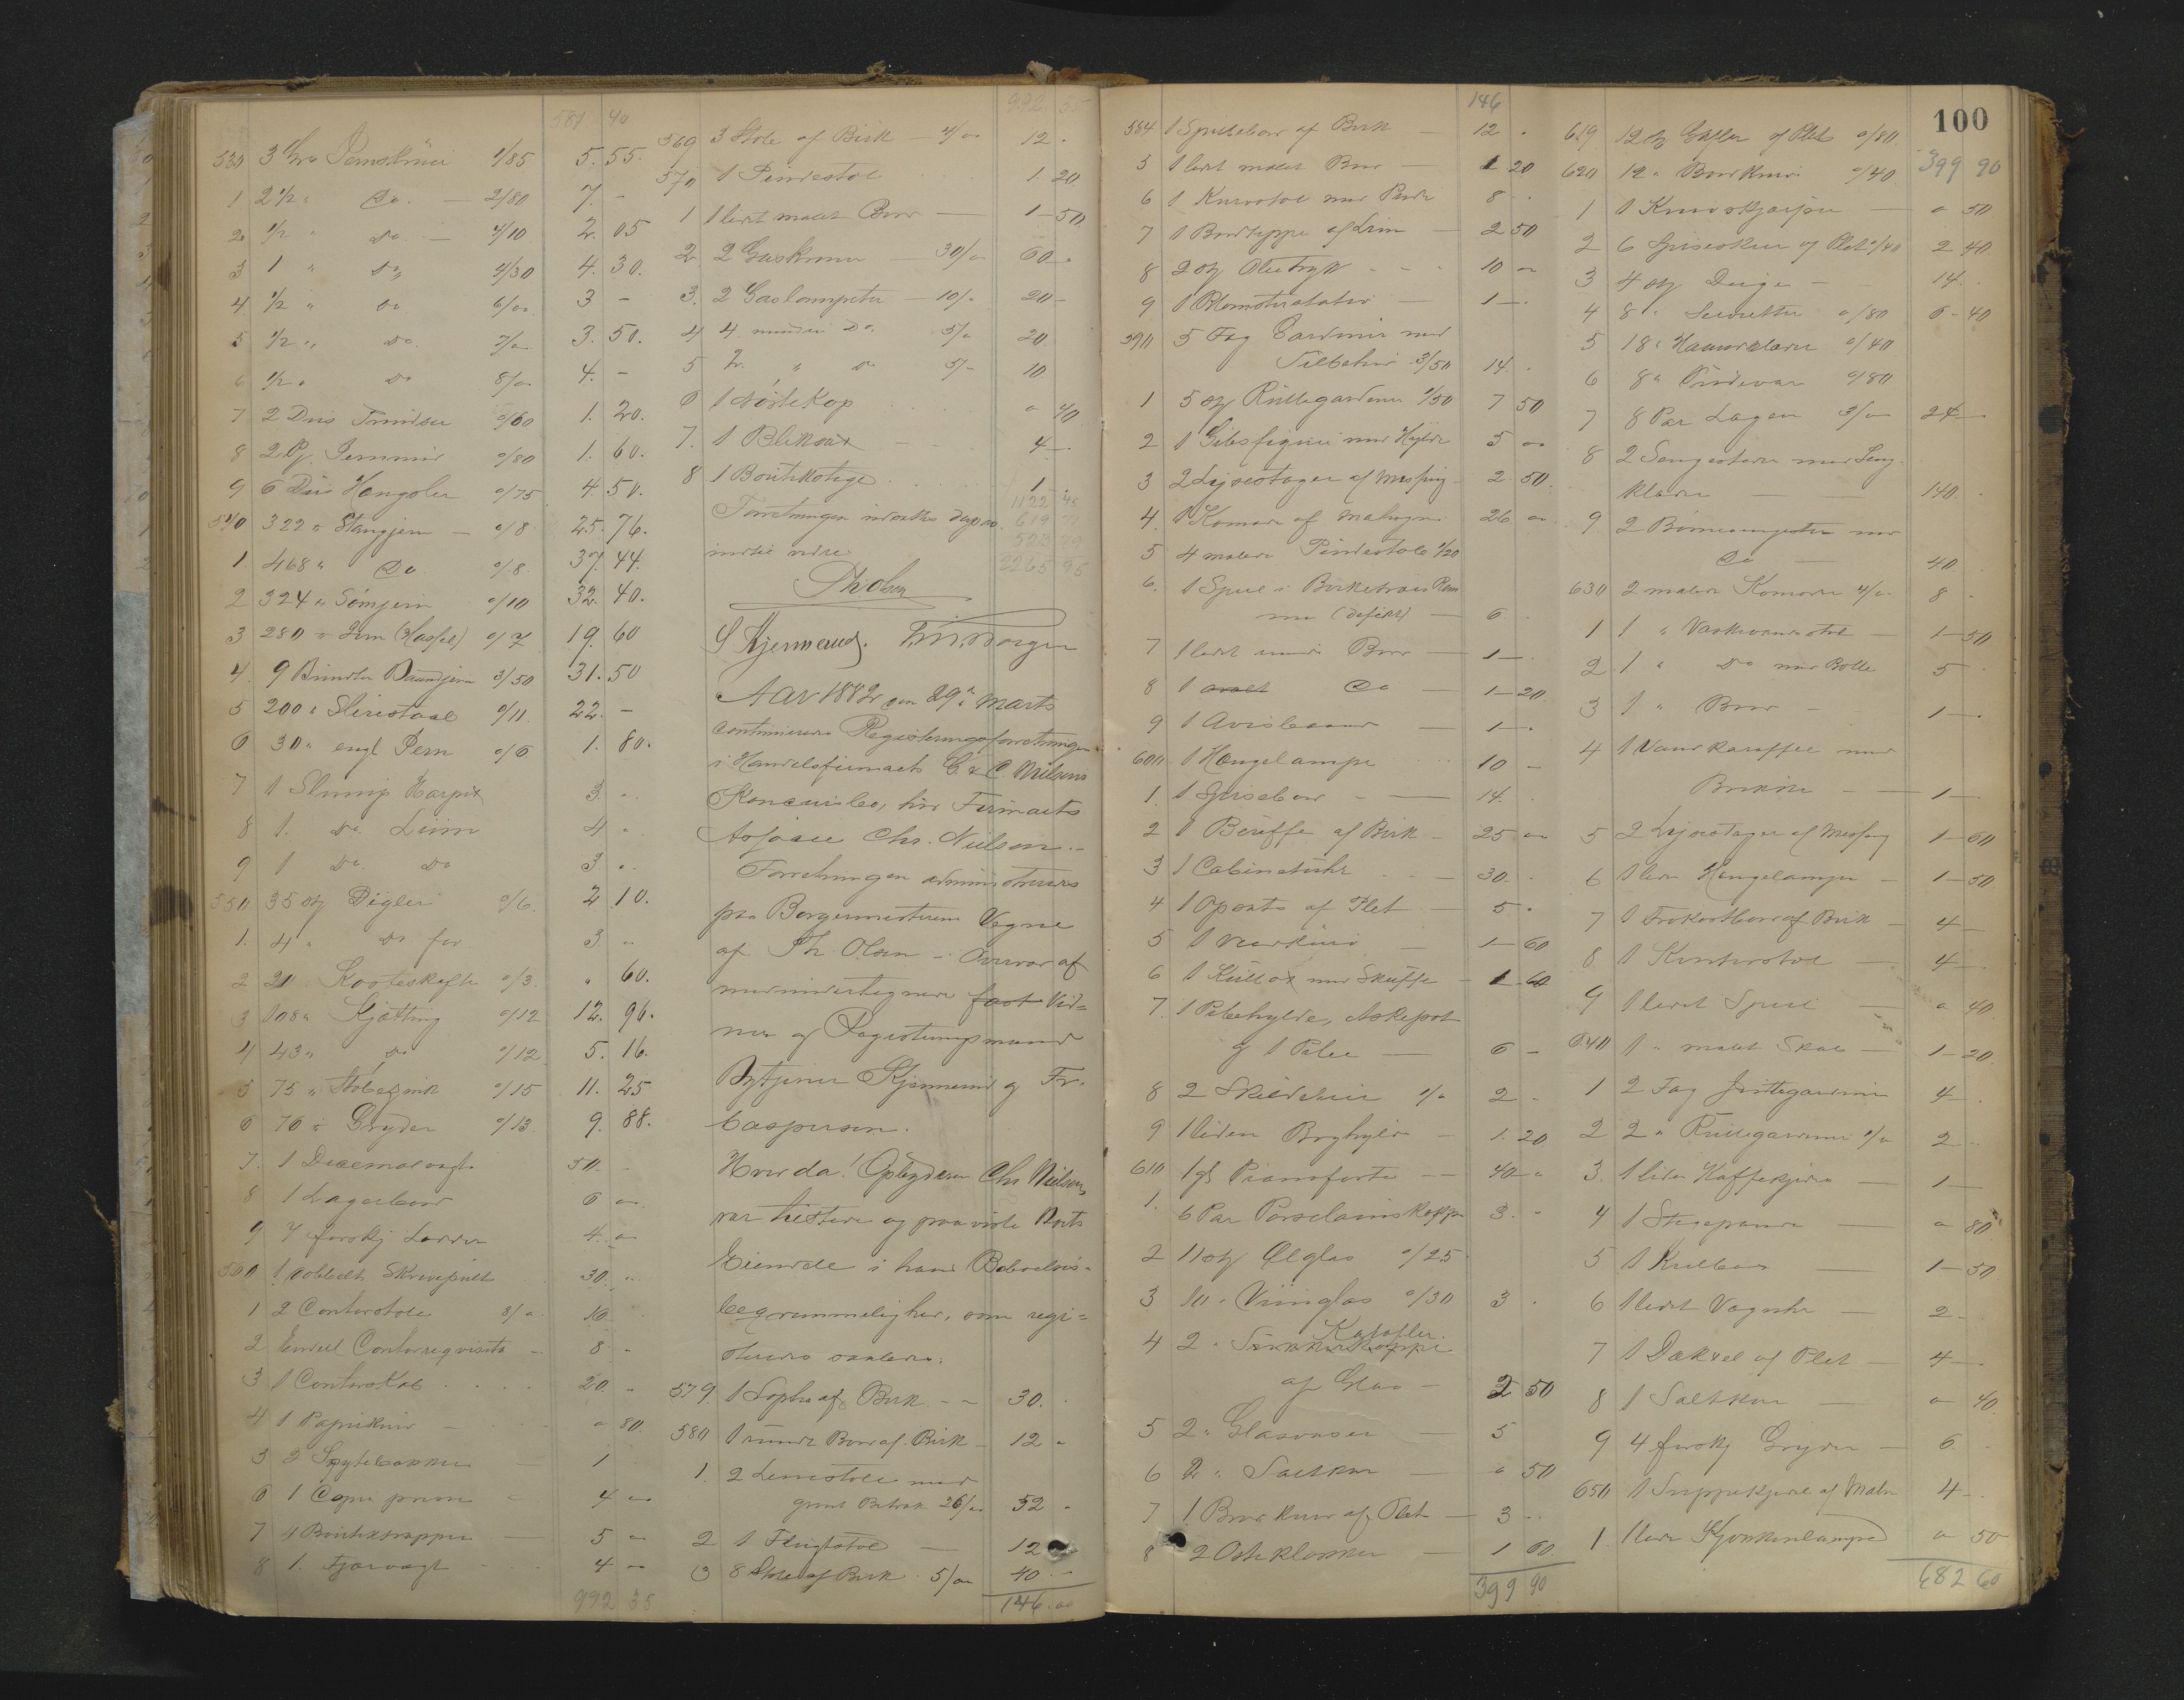 581 40
530 3 Gro Jernskruer 1/85 5. 55.
1 2 1/2 " Do. — 2/80 7. -
2 1/2 " Do — 4/10 2. 05
3 1 " Do 4/30 4. 30.
4 1/2 " Do 6/00 3 -
5 1/2 " Do. 7/00 3. 50.
6 1/2 " Do 8/00 4. -
7 2 Dus 0/60 1. 20.
8 2 0/80 1. 60.
9 6 Dus Hængsler 0/75 4. 50.
540 322 " Stangjern — 0/8 25. 76.
1. 468 " Do 0/8. 37. 44.
2 324 " Sömjern 0/10 32. 40.
3 280 " Jern (Hassel) 0/7 19. 60
4. 9 Bundter Baandjern 3/50 31. 50
5 200 " Slirestaal 0/11. 22. -
6 30 " engl Jern 0/6 1. 80.
7 1 Slump Harpix 3. -
8 1. Do. Liim 4 -
9 1 Do Do 3. -
550 35 Stk Digler 0/6. 2 10.
1. 4 " Do for 3. -
2 20 Kosteskafte 0/3. " 60.
3 108 " Kjætting 0/12 12. 96.
4 43 " Do 0/12 5. 16.
5 75 " Støbezink 0/15 11. 25
6 76 " Gryder 0/13. 9. 88.
7. 1 Decemalvægt 50. -
8 1 Lagerbord 6 -
9 7 forskj Lodder 4. -
560 1 dobbelt Skrivepult 30. -
1 2 Contorstole 8/00 16
2 Endeel Contorreqvisita 8 -
3 1 Contorskab 20. -
4 1 Papirkniv " 80.
5 2 Spytebakker 1
6 1 Copi presse 4 -
7 1 Boutikstrappe 5 -
8 1. Fjærvægt 4 -
992 35
992 35
569 3 Stole af Birk 4/00 12 -
570 1 Pindestol 1. 20
1 1 lidet malet Bord — 1 - 50
2 2 Gaskroner — 30/00 60 -
3. 2 Gaslampetter — 10/- 20 -
4 4 mindre Do. 5/- 20
5 2 " Do 5/- 10
6 1 Nöstekop " 40
7. 1 Bliksax 4 -
8 1 Boutikstige 1 -
1122 45
Forretningen indsattes dagen
619
523 79
2265 95
Th Olsen
S Kjennerud.
Aar 1882 den 29de Marts
continuerede Registreringsforretningen
i Handelsfirmaets C & C Nielsens
Koncursbo, hos Firmaets
Assosie Chr. Nielsen. -
Forretningen administreredes
paa Borgermesterens Vegne
af Th. Olsen - Overvar af
medundertegnede fast Vid=
ner og Registreringsmænd
Bytjener Kjennerud og Fr.
Caspersen.
Hvorda! Opbyderen Chr Nielsen
var tilstede og paaviste Boets
Eiendele i hans Beboelses-
begvemmeligheder, som regi=
streredes saaledes:
579. 1 Sopha af Birk - - 30. -
580 1 rundt Bord af Birk - 12 -
1. 2 Lenestole med
grønt Betræk 26/00 52 -
2 1 Flugtstol — 12 -
3 8 Stole af Birk 5/00 40 -
146. 00
146
100
584 1 Spillebord af Birk — 12 -
5 1 lidet malet Bord — 1 20
6 1 Kurvstol med Pude 8 -
7 1 Bordteppe af — 2 50
8 2 Stk Olietryk - - - 10 -
9 1 Blomsterstativ — 1 -
590 5 Fag Gardiner med
Tilbehør 3/50 14. -
1 5 Stk Rullegardiner 1/50 7 50
2 1 Gibsfigur med Hylde 5 00
3 2 Lysestager af Messing 2. 50.
4. 1 Komode af Mahogni 26. 00
5 4 malede Pindestole 1/20
6. 1 Speil i Birketræes Ram
me (defekt) — 6 -
7 1 lidet rundt Bord — 1 -
8 1 ovalt Do — 1 - 20
9 1 Avisbaand — 1 -
600 1 Hængelampe 10 -
1. 1 Spisebord — 14. -
2 1 Büffe af Birk — 25 00
3 1 Cabinetuhr — 30. -
4 1 Opsats af Plet — 5 -
5 1 — 1 - 60
6 1 med Skuffe — 1. 60
7. 1 Pibehylde, Askepot
og 1 Pibe — 6 -
8 2 Skilderier 1/00 2 -
9 1 liden Boghylde — 1. 20
610 1 gl Pianoforte — 40 -
1. 6 Par Porselainskopper 3. -
2 11 Stk Ølglas 0/25
3 10 " Viinglas 0/30 3 -
Karafler
4 2 " kopper
af Glas — 2 50
5 2 " Glasvaser — 5
6 2 " Saltkar — " 50
7 1 Bordkniv af Plet — 3 -
8 2 Osteklokker — 1 60.
399 90
619 12 Stk Gafler af Plet 0/80.
399 90
620 12 " Bordknive 0/40
1 1 — " 50
2 6 Spiseskeer af Plet 0/40 2 40
3 4 Stk Duge — 14. -
4 8 " Servietter 0/80 6 - 40
5 18 " Haandklæder 0/40
6 8 " Pudevar 0/80
7 8 Par Lagen 3/00 24 -
8 2 Sengesteder med Seng
klæder — 140 -
9 2 Børnesengesteder med
Do — 40 -
630 2 malede Komoder 4/00 8 -
1 1 " Vaskevandstol — 1 - 50
2 1 " Do med Bolle 5 -
3 1 " Bord — 1 -
4 1 Vandkaraffel med
Brikke — 1 -
5 2 Lysestager af Messing 1 - 60
6 1 liden Hængelampe — 1 - 50
7 1 Frokostbord af Birk — 4 -
8 1 Kontorstol — 4 -
9 1 lidet Speil — " 40
640 1 " malet Skab — 1 - 20
1 2 Fag gardiner 4 -
2 2 " Rullegardiner 1/00 2 -
3. 1 liden Kaffekjedel — 1 -
4 1 Stegepande — " 80
5 1 Kulboks — 1 - 50
6 1 lidet — 2 -
7 1 Dæksel af Plet — 4 -
8 1 Saltkar — " 40
9 4 forskj Gryder — 6 -
650 1 Suppekjedel af Malm 4 -
1. 1 liden Kjøkkenlampe " 50
682 60